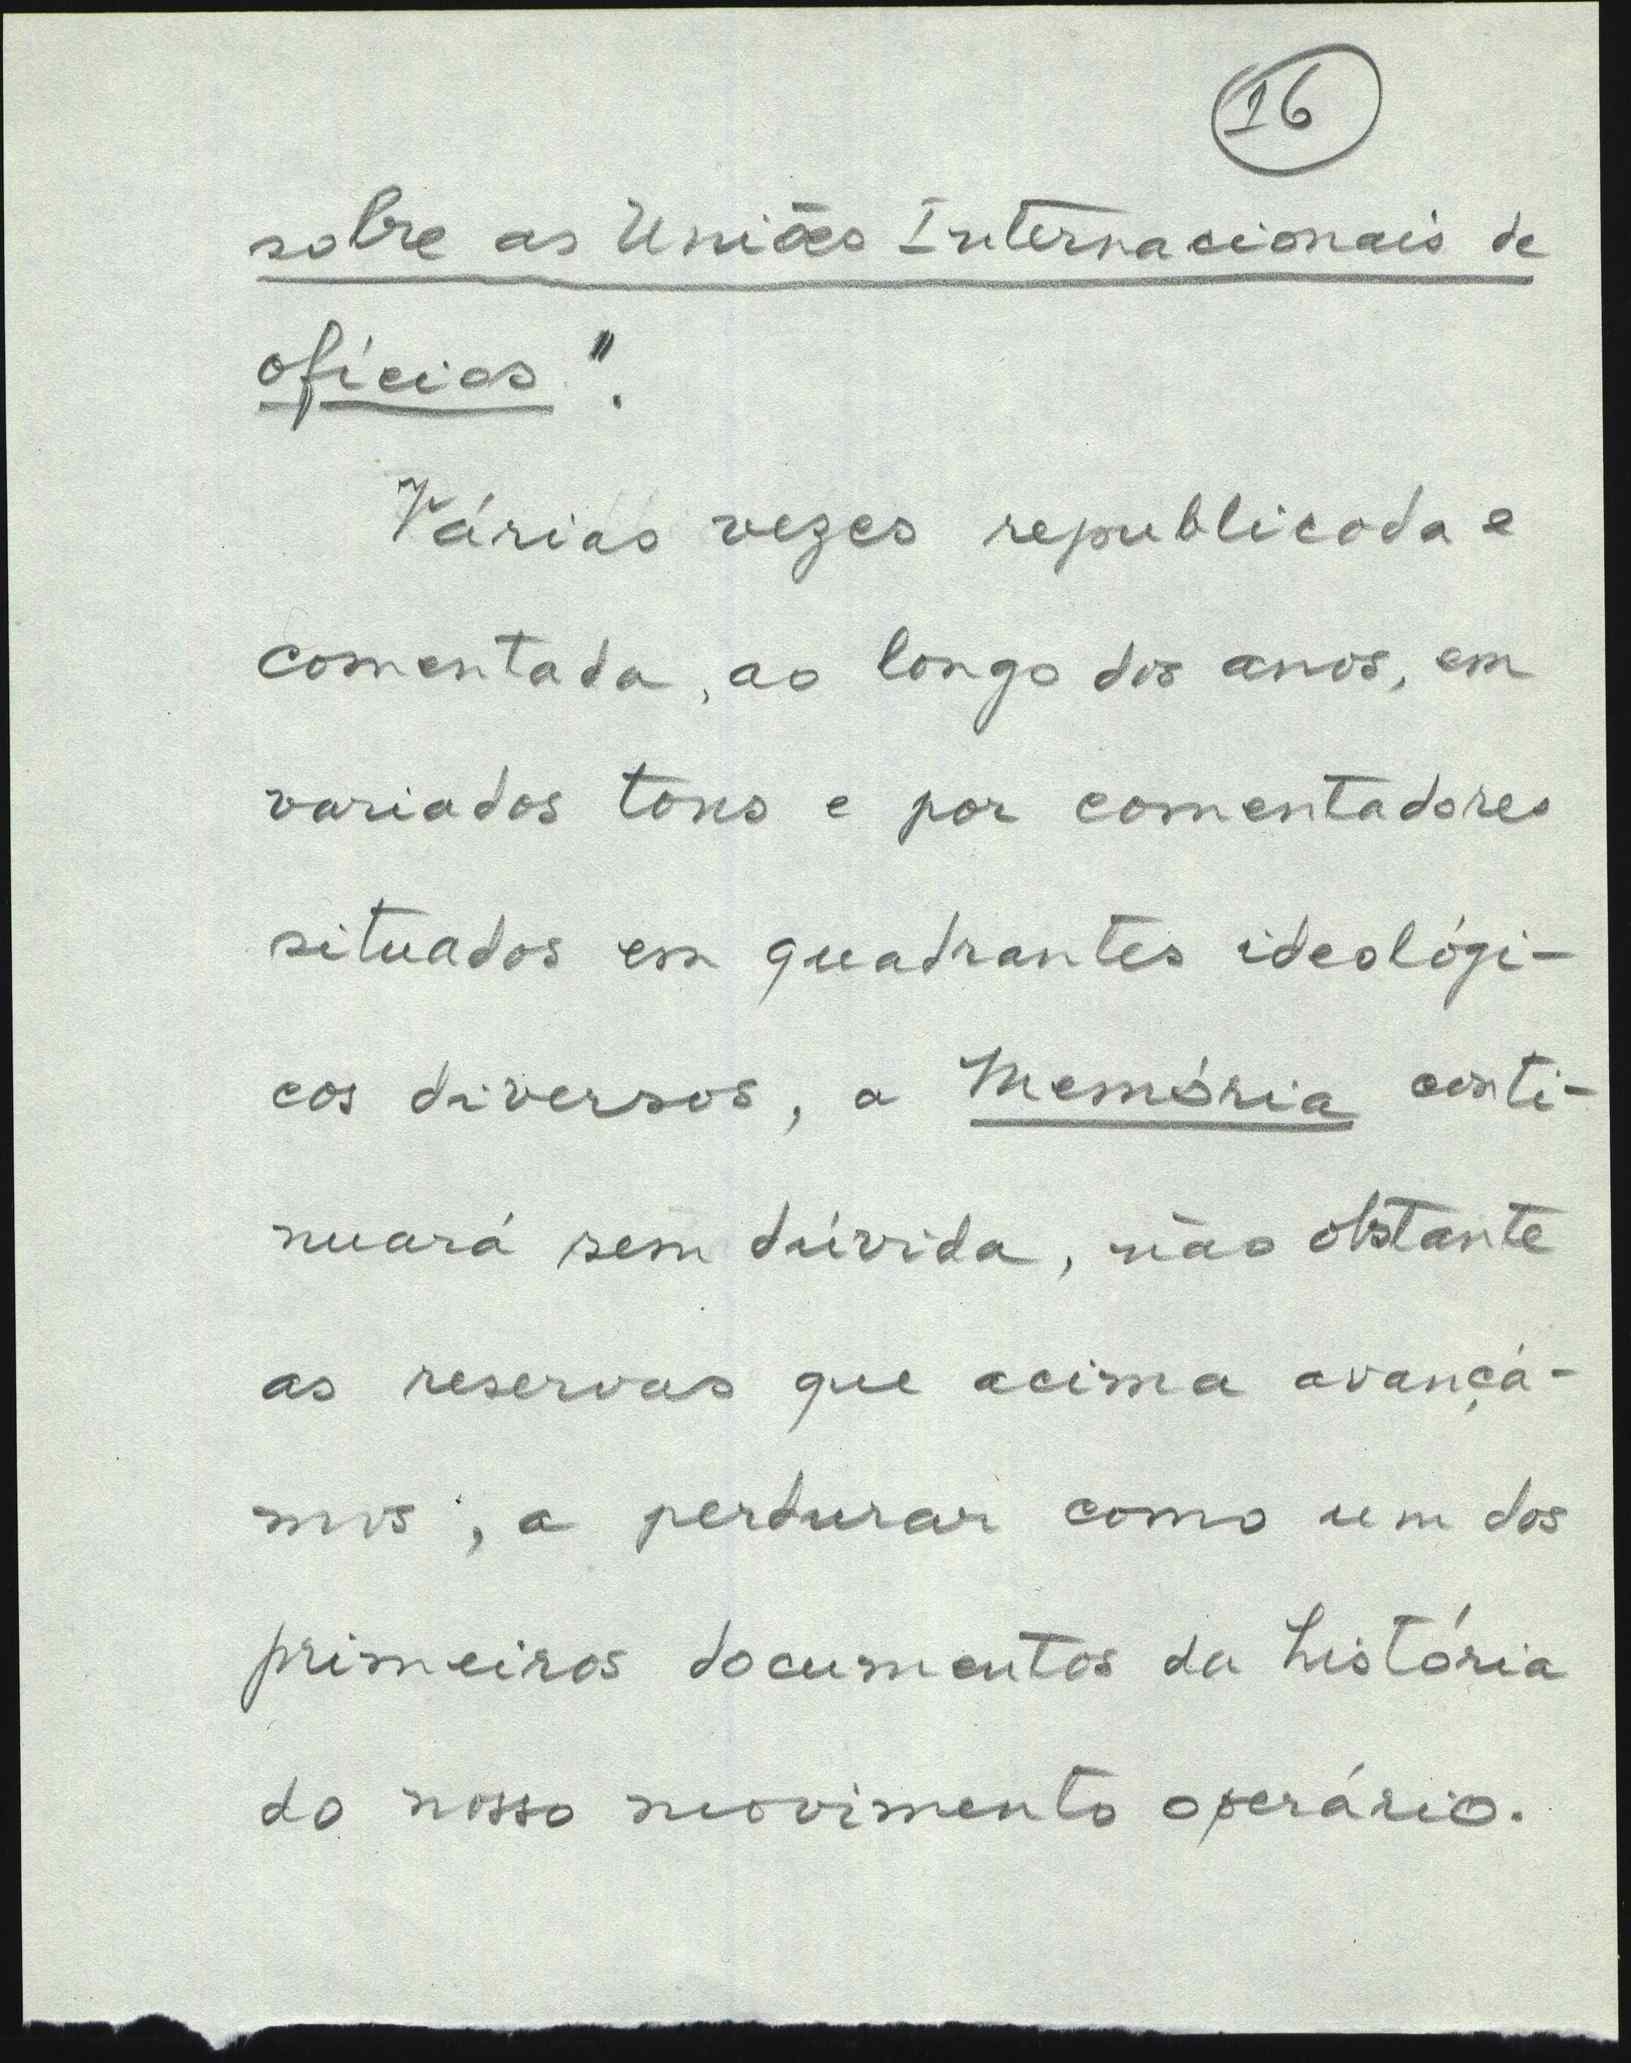 16
sobre as Uniões Internacionais de
ofícios".
Várias vezes republicada e
comentada, ao longo dos anos, em
variados tons e por comentadores
situados em quadrantes ideológi-
cos diversos, a Memória conti-
nuará sem dúvida, não obstante
as reservas que acima avançá-
mos, a perdurar como um dos
primeiros documentos da história
do nosso movimento operário.